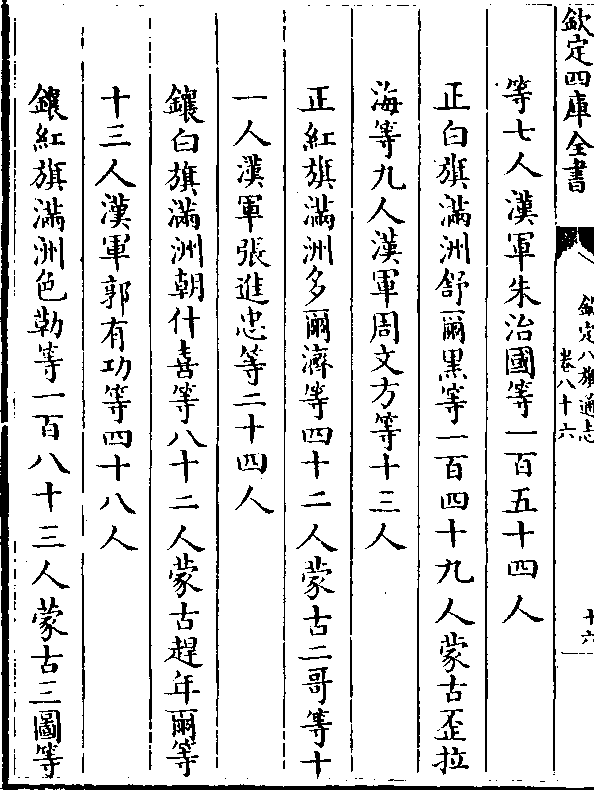 欽定四庫全書
欽定八旗通志
卷八十六
十六
等七人漢軍朱治國等一百五十四人
正白旗滿洲舒爾黑等一百四十九人蒙古歪拉
海等九人漢軍周文方等十三人
正紅旗滿洲多爾濟等四十二人蒙古二哥等十
一人漢軍張進忠等二十四人
鑲白旗滿洲朝什喜等八十二人蒙古趕年爾等
十三人漢軍郭有功等四十八人
鑲紅旗滿洲色勒等一百八十三人蒙古三圖等